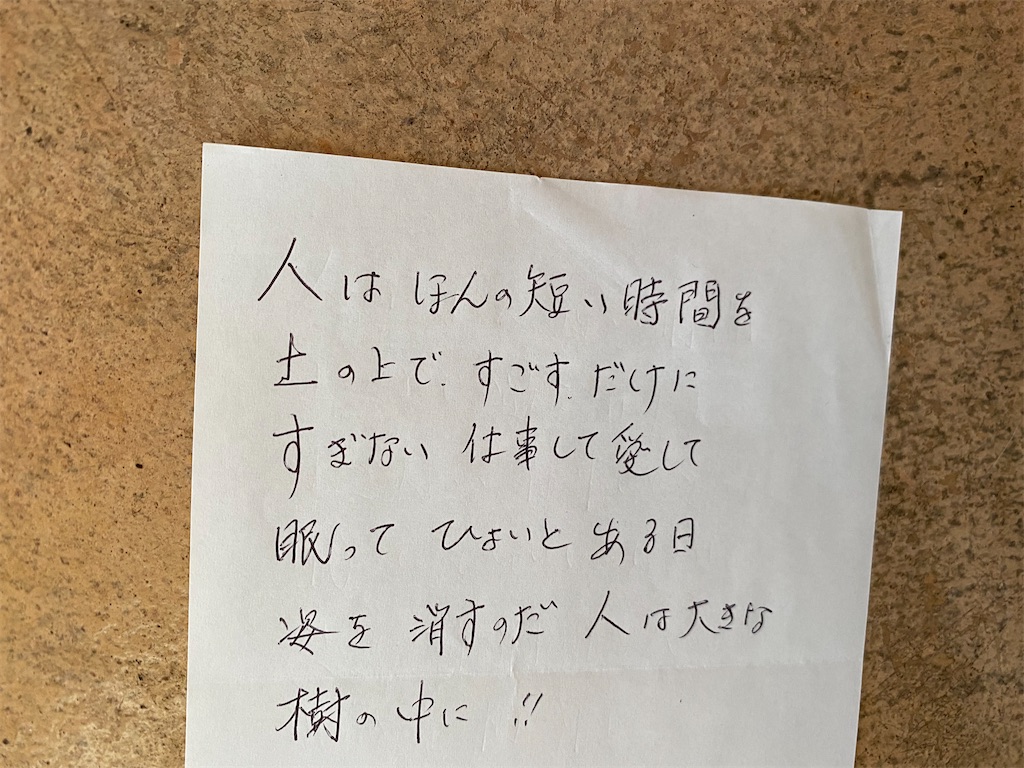 人は ほんの短い時間を
土の上で すごす だけに
すぎない 仕事して愛して
眠って ひょいと ある日
姿を 消すのだ 人は大きな
樹の中に !!